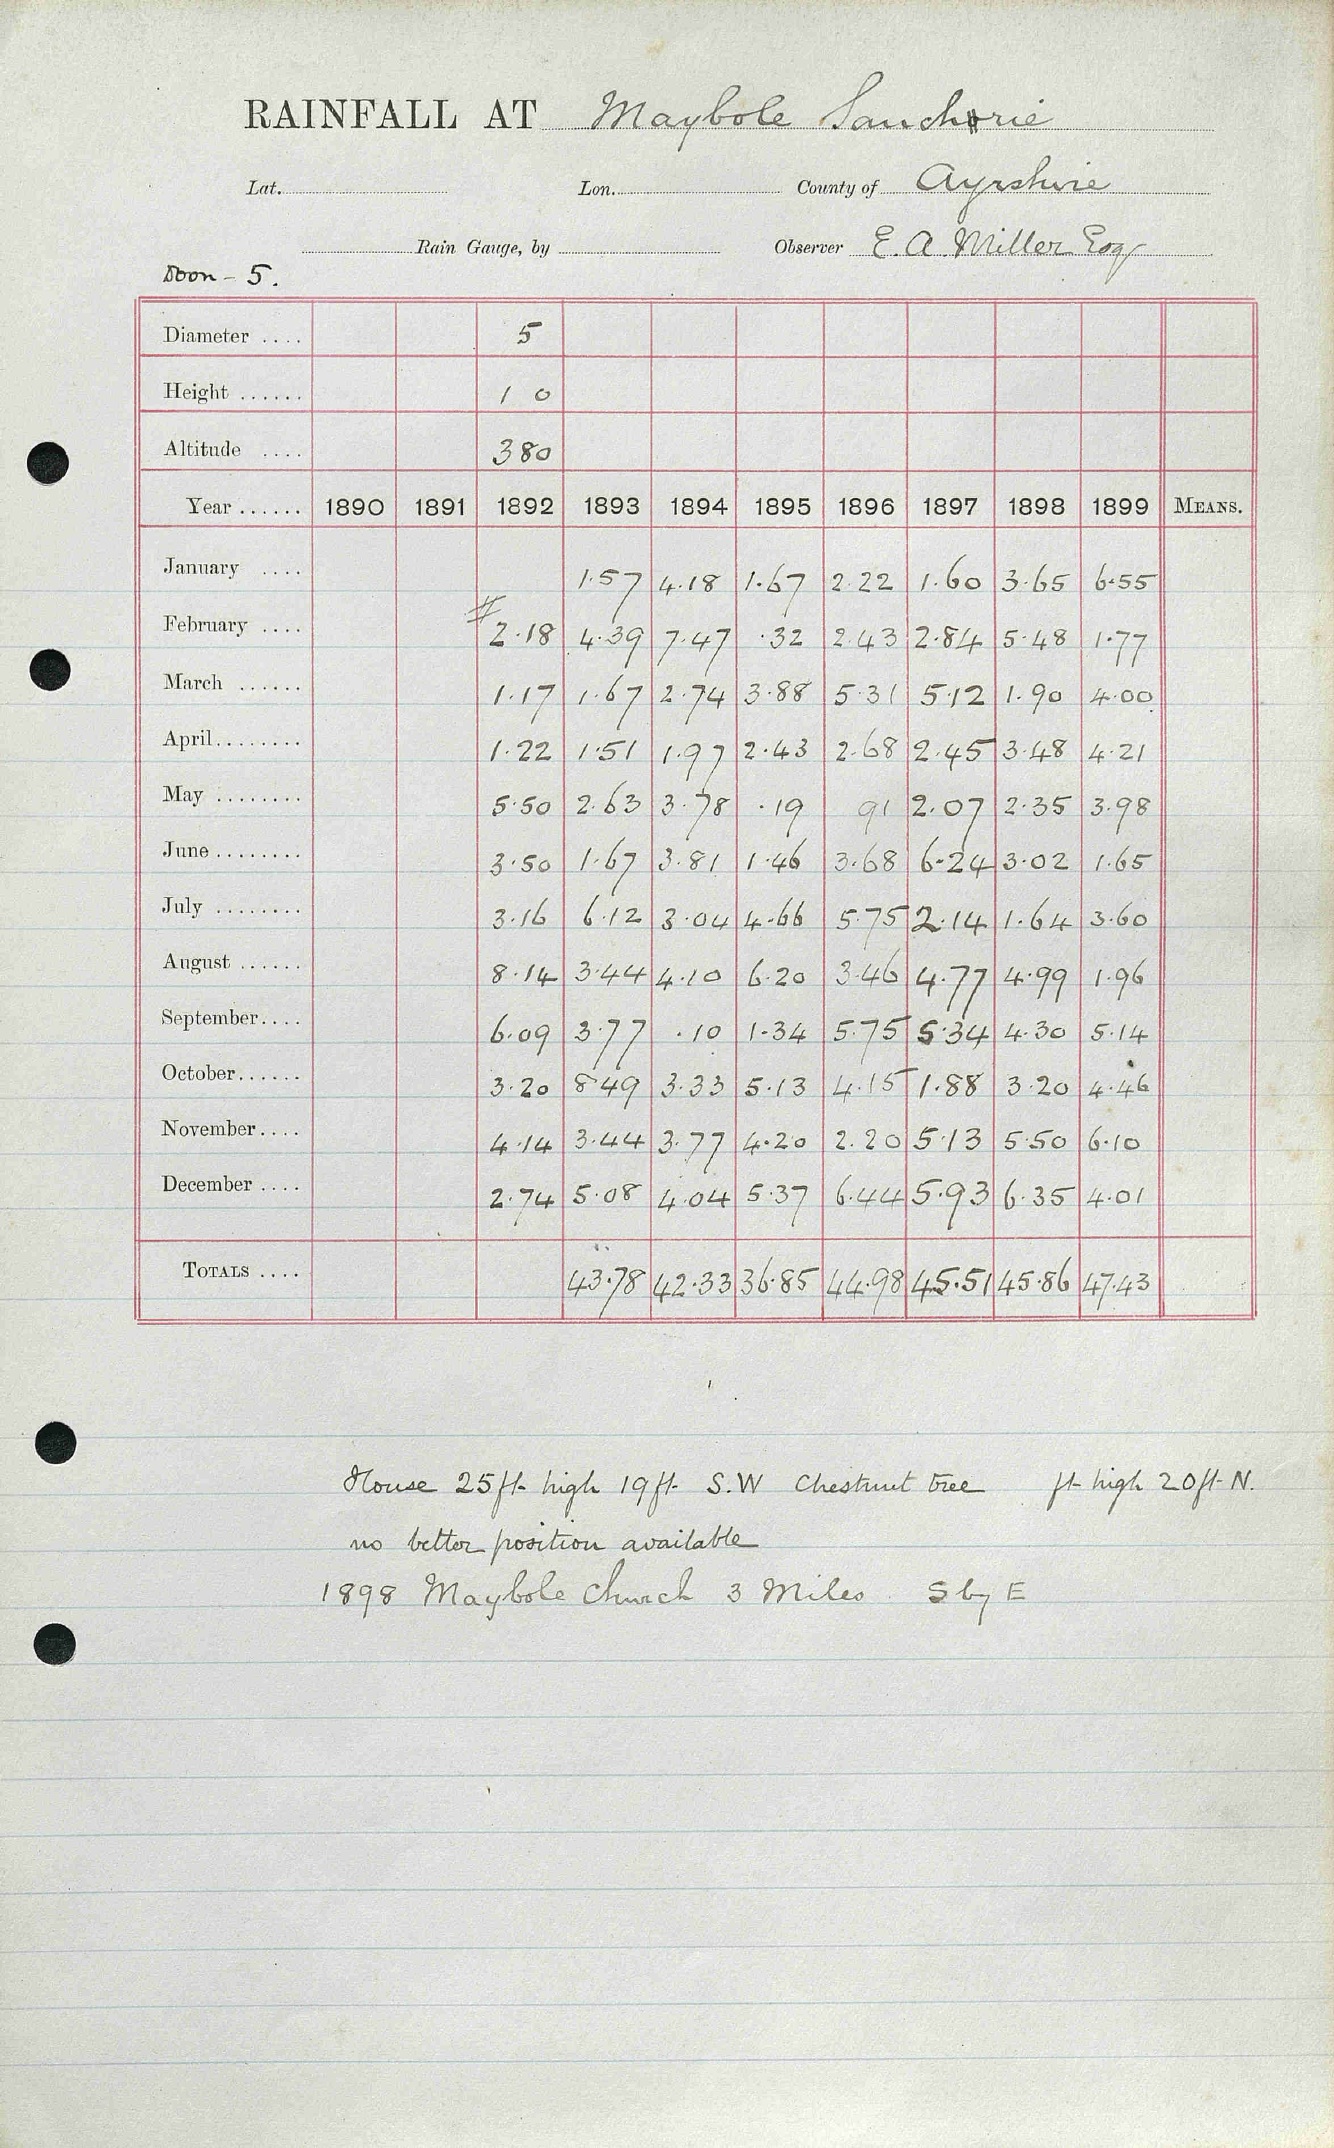 RAINFALL AT Maybole Sauchrie
Lat. Lon. County of Ayrshire
Rain Gauge, by Observer E. A. Miller Esq
Doon - 5.
Diameter .... 5
Height ...... 1 0
Altitude .... 380
Year ...... 1890 1891 1892 1893 1894 1895 1896 1897 1898 1899 MEANS.
January .... 1.57 4.18 1.67 2.22 1.60 3.65 6.55
February .... # 2.18 4.39 7.47 .32 2.43 2.84 5.48 1.77
March ...... 1.17 1.67 2.74 3.88 5.31 5.12 1.90 4.00
April........ 1.22 1.51 1.97 2.43 2.68 2.45 3.48 4.21
May ........ 5.50 2.63 3.78 .19 91 2.07 2.35 3.98
June........ 3.50 1.67 3.81 1.46 3.68 6.24 3.02 1.65
July ........ 3.16 6.12 3.04 4.66 5.75 2.14 1.64 3.60
August ...... 8.14 3.44 4.10 6.20 3.46 4.77 4.99 1.96
September.... 6.09 3.77 .10 1.34 5.75 5.34 4.30 5.14
October...... 3.20 8.49 3.33 5.13 4.15 1.88 3.20 4.46
November.... 4.14 3.44 3.77 4.20 2.20 5.13 5.50 6.10
December .... 2.74 5.08 4.04 5.37 6.44 5.93 6.35 4.01
TOTALS .... 43.78 42.33 36.85 44.98 45.51 45.86 47.43
House 25ft high 19ft S.W Chestnut tree ft high 20ft N.
no better position available
1898 Maybole Church 3 Miles S by E